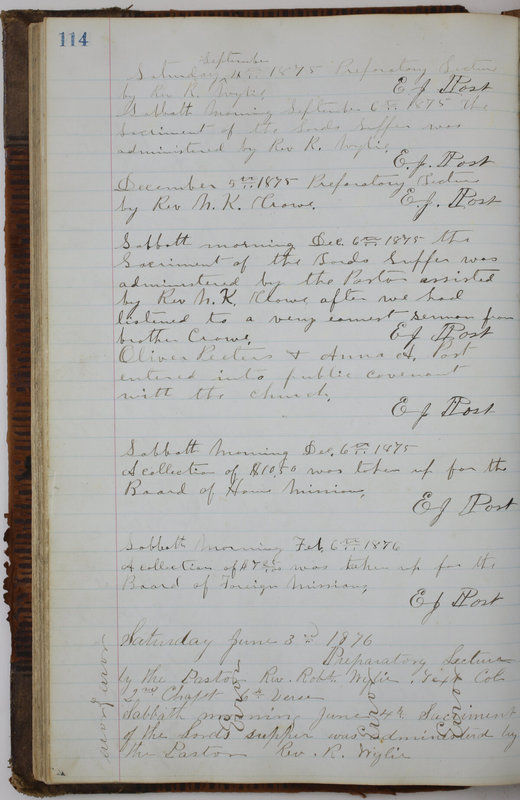 114
September
Saturday 4th 1875 Preparatory Lecture
by Rev R. Wylie, E J Post
Sabbath Morning September 6th 1875 the
Sacriment of the Lords Supper was
administered by Rev R. Wylie,
E. J. Post
December 5th 1875 Preparatory Lecture
by Rev N. K. Crowe. E J. Post
Sabbath morning Dec. 6th 1875 the
Sacriment of the Lords Supper was
administered by the Pastor assisted
by Rev N. K Krowe after we had
listened to a very earnest sermon from
brother Crowe, E J Post
Oliver Peeters & Anna A, Post
entered into public covenant
with the church,
E J Post
Sabbath Morning Dec, 6th 1875
A collection of $10,50 was taken up for the
Board of Home Missions,
E J Post
Sabbath Morning Feb, 6th 1876
A collection of was taken up for the
Board of Foreign Missions,
E J Post
Saturday June 3rd 1876
Preparatory Lecture
by the Pastor Rev. Robt. Wylie Text Col
2nd Chapt 6th Verse
Sabbath morning June 4th Sacriment
of the Lords supper was administered by
the Pastor Rev. R. Wylie
Error
Error
Error